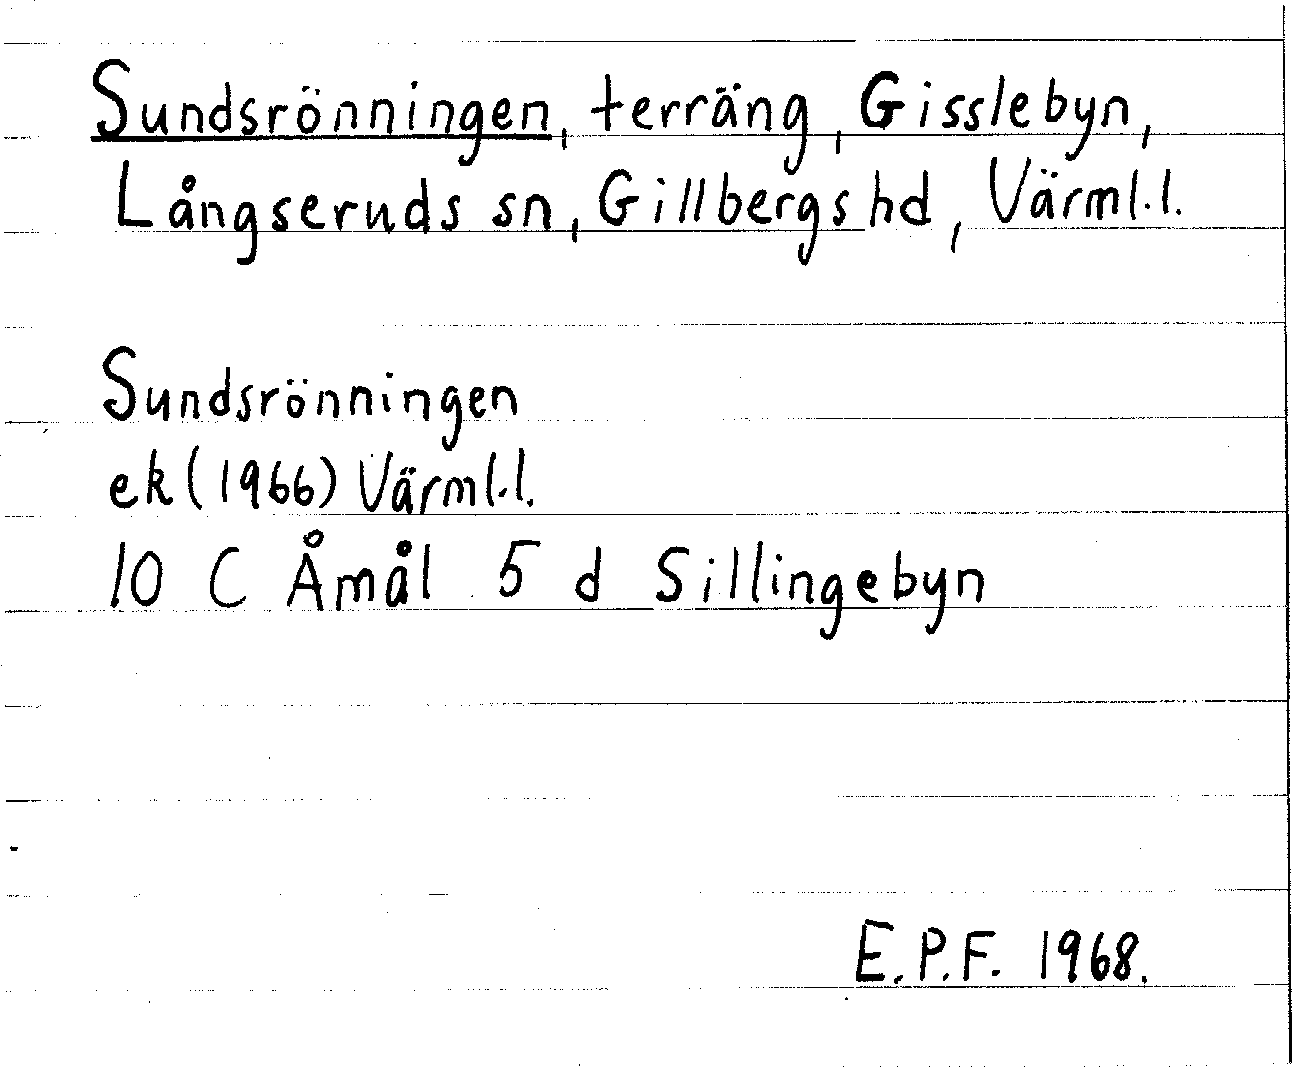 Sundsrönningen, terräng, Gisslebyn,
Långseruds sn, Gillbergs hd, Värml.l.
Sundsrönningen
ek (1966) Värml.l.
10 C Åmål 5 d Sillingebyn
E.P.F. 1968.